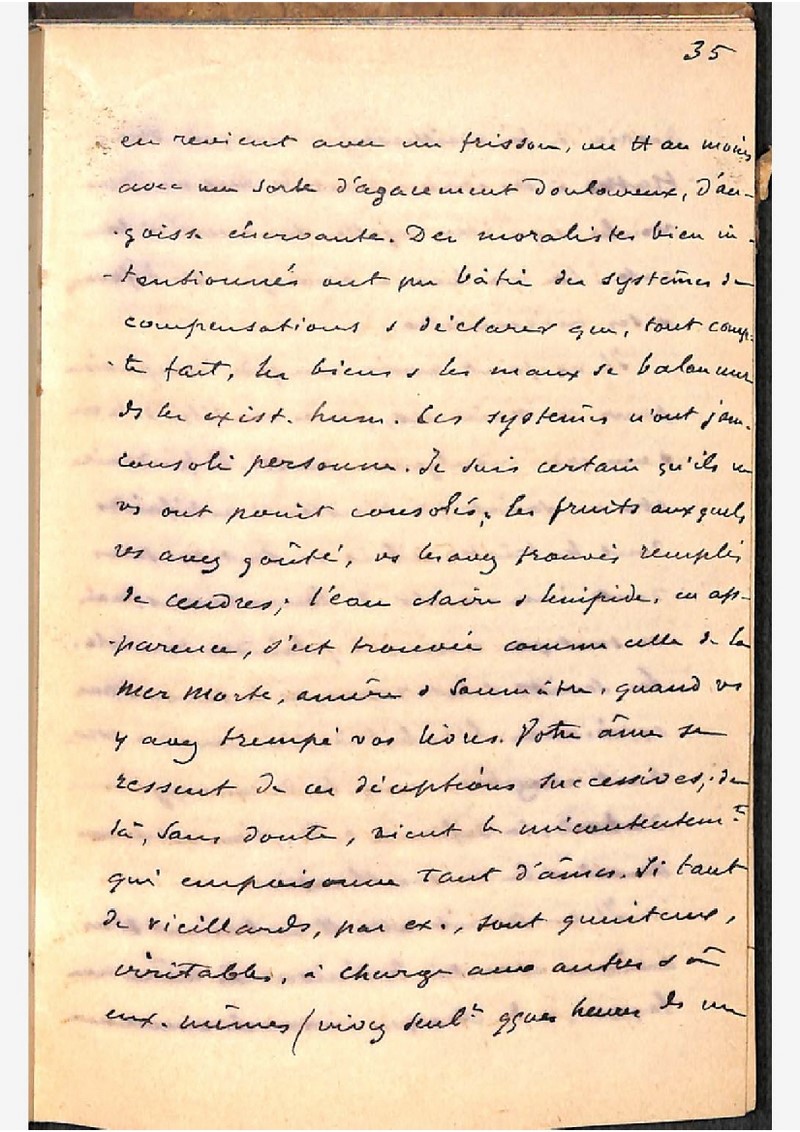 35
en revient avec un frisson, ou tt au moins
avec une sorte d'agacement douloureux, d'an-
-goisse énervante. Des moralistes bien in-
-tentionnés ont pu bâtir des systèmes de
compensations & déclarer que, tout comp-
-te fait, les biens & les maux se balancent
ds les exist. hum. Ces systèmes n'ont jam.
consolé personne. Je suis certain qu'ils ne
vs ont point consolés; les fruits auxquels
vs avez goûté, vs les avez trouvés remplis
de cendres; l'eau claire & limpide, en ap-
-parence, s'est trouvée comme celle de la
Mer Morte, amère & saumâtre, quand vs
y avez trempé vos lèvres. Votre âme se
ressent de ces déceptions successives; de
là, sans doute, vient le mécontentemt
qui empoisonne tant d'âmes. Si tant
de vieillards, par ex., sont quinteux,
irritables, à charge aux autres & à
eux-mêmes (vivez seult qques heures ds un